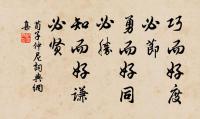 巧而好度
必節
勇而好同
必勝
知而好謙
必賢
荀子仲尼詞典網